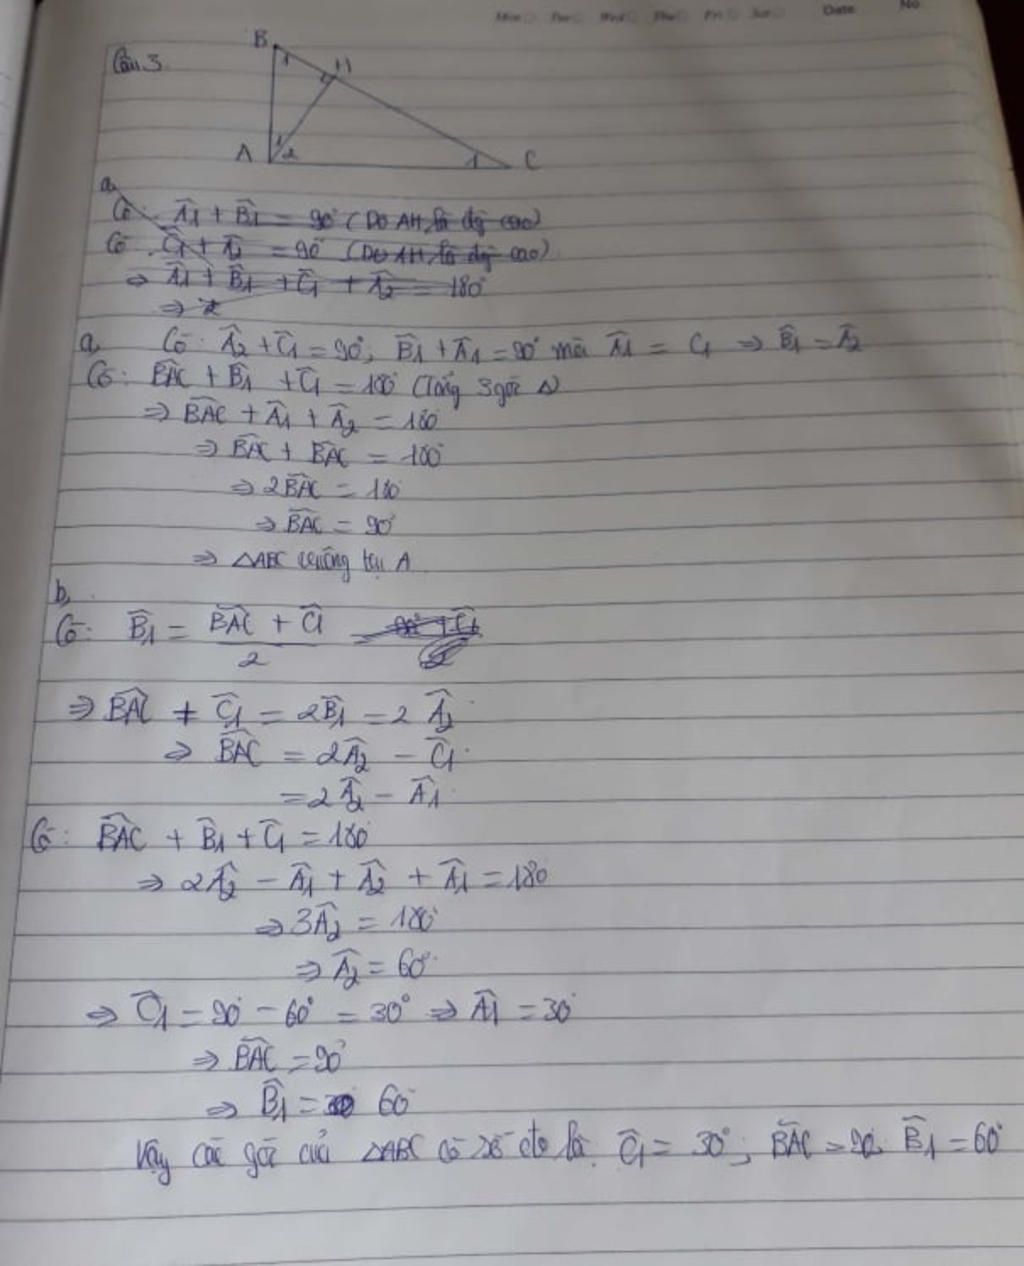 Mon Tue Wed Thu Fri Sat Date No.
Câu 3.
B
1
H
A
1
2
1
C
a,
Có: Â1 + B̂1 = 90° (Do AH là đg cao)
Có Ĉ1 + Â2 = 90° (Do AH là đg cao)
⇒ Â1 + B̂1 + Ĉ1 + Â2 = 180°
⇒
a, Có: Â2 + Ĉ1 = 90°; B̂1 + Â1 = 90° mà Â1 = C1 ⇒ B̂1 = Â2
Có: BAC + B̂1 + Ĉ1 = 180° (Tổng 3 góc Δ)
⇒ BAC + Â1 + Â2 = 180
⇒ BAC + BAC = 180°
⇒ 2BAC = 180
⇒ BAC = 90°
⇒ ΔABC vuông tại A
b,
Có: B̂1 = (BAC + Ĉ1)/2 =
⇒ BAC + Ĉ1 = 2B̂1 = 2 Â2
⇒ BAC = 2Â2 - Ĉ1
= 2Â2 - Â1
Có: BAC + B̂1 + Ĉ1 = 180°
⇒ 2Â2 - Â1 + Â2 + Â1 = 180
⇒ 3Â2 = 180°
⇒ Â2 = 60°
⇒ Ĉ1 = 90° - 60° = 30° ⇒ Â1 = 30°
⇒ BAC = 90°
⇒ B̂1 = 60°
Vậy các góc của ΔABC có số đo là: Ĉ1 = 30°; BAC = 90; B̂1 = 60°